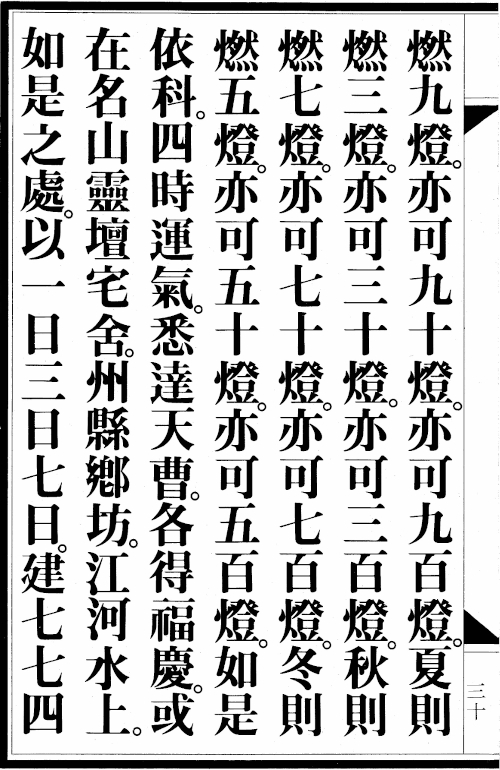 燃九燈。亦可九十燈。亦可九百燈。夏則
燃三燈。亦可三十燈。亦可三百燈。秋則
燃七燈。亦可七十燈。亦可七百燈。冬則
燃五燈。亦可五十燈。亦可五百燈。如是
依科。四時運氣。悉達天曹。各得福慶。或
在名山靈壇宅舍。州縣鄉坊。江河水上。
如是之處。以一日三日七日。建七七四
三十